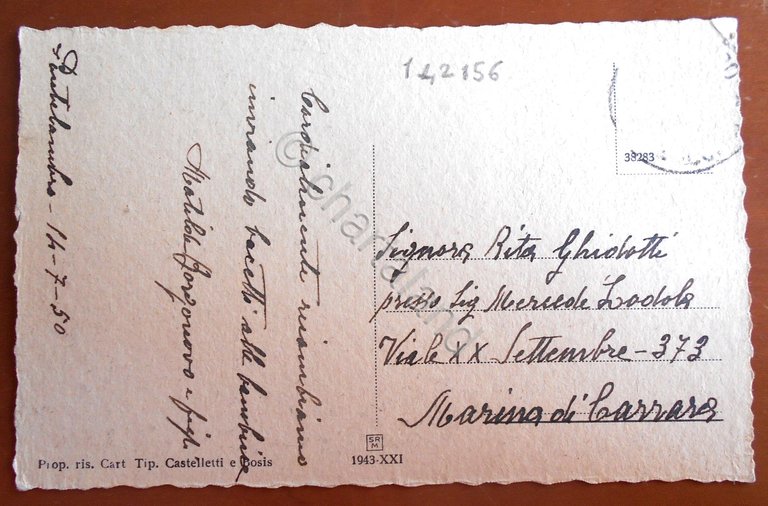 142156
38283
Pontelambro - 14-7-50
Cordialmente ricambiamo
inviando bacetti alle bambine
Matilde Borgonovo e figli
Signora Rita Ghidotti
presso Sig Mercede Lodola
Viale XX Settembre - 373
Marina di Carrara
Prop. ris. Cart Tip. Castelletti e Bosis
SR
M
1943-XXI
© chartaland